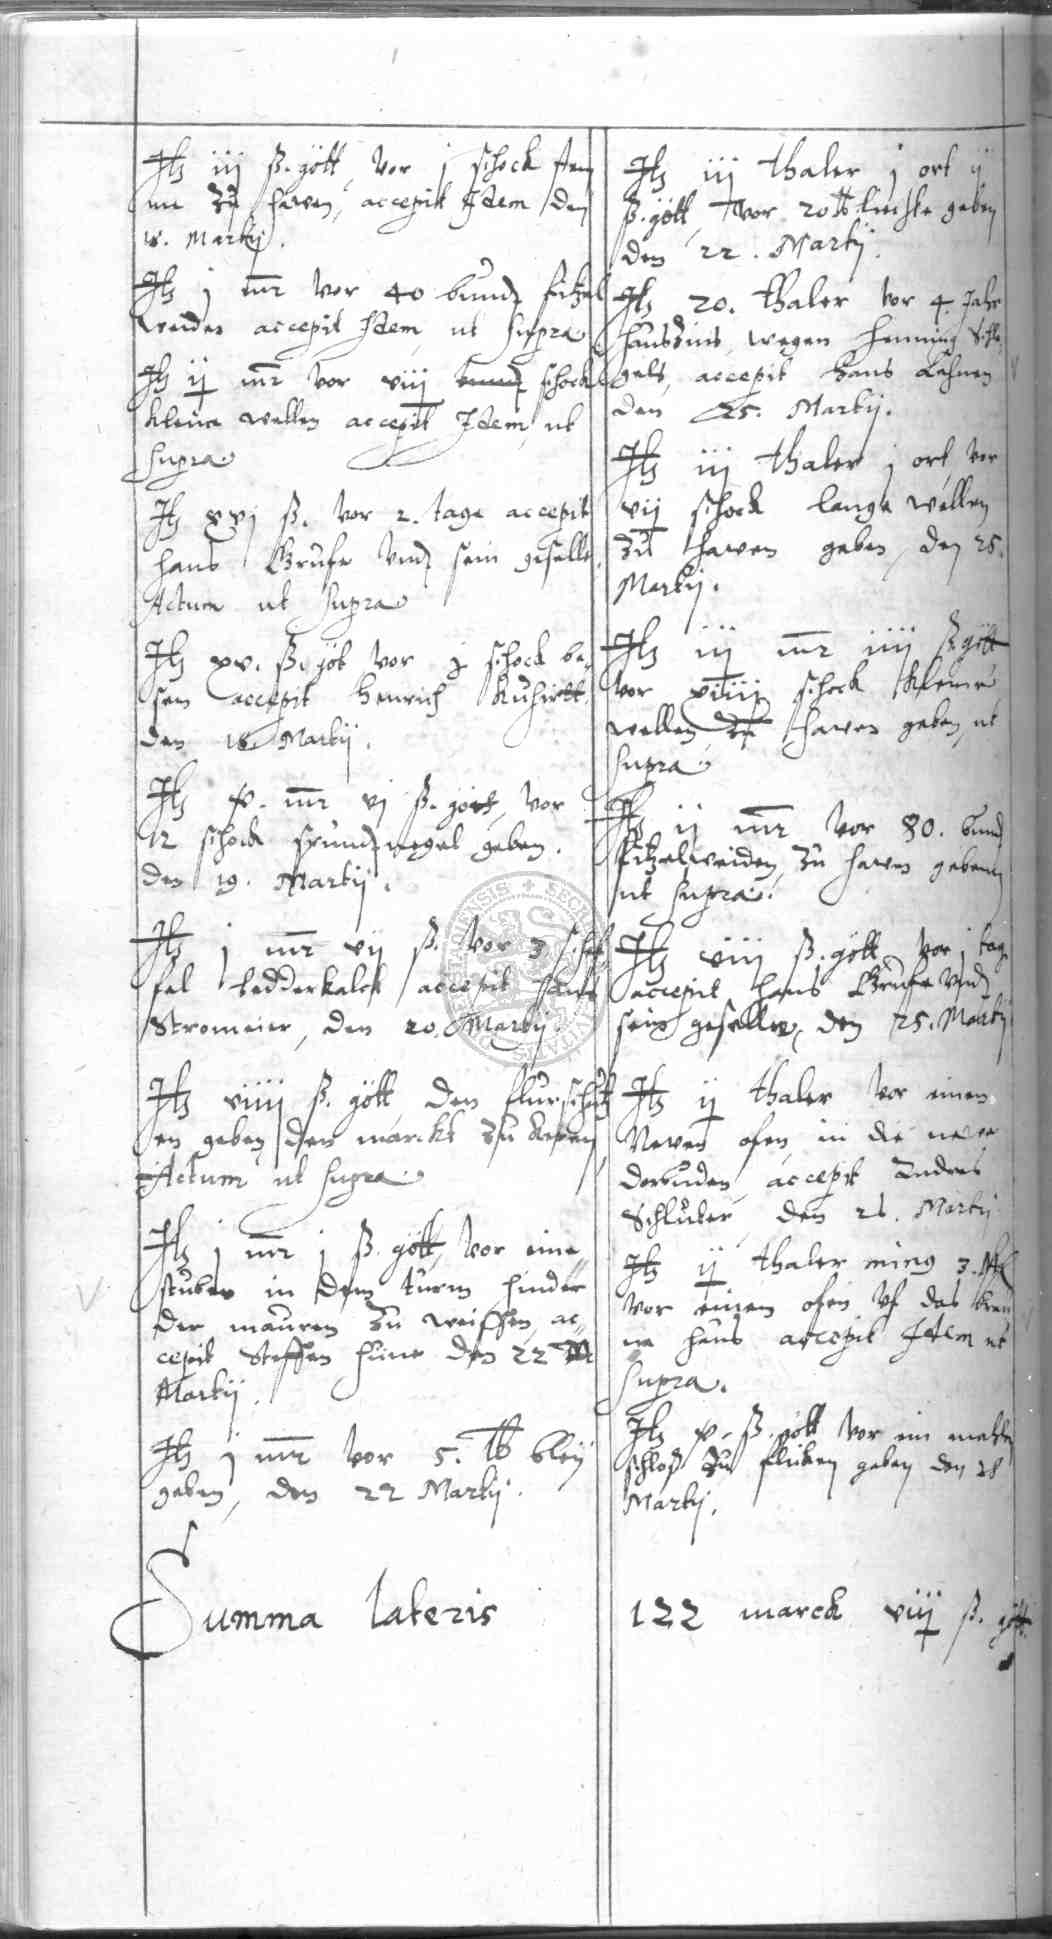 Itz iij ß. gött, vor j schock
zu hawen, accepit Idem den
18. Martij.
Itz j mr vor 40 bundt fitzel
weiden accepit Idem, ut supra
Itz ij mr vor viij schock
kleine wellen accepit Idem, ut
supra
Itz xvj ß. vor 2. tage accepit
Hans Grufe vnd sein geselle
Actum ut supra
Itz xv. ß. göt vor j schock be-
sem accepit Henrich Kuhirtt
den 18. Martij.
Itz x. mr vj ß. gött, vor
12 schock spundnegel geben.
den 19. Martij.
Itz j mr vij ß. vor 3 schef-
fel ledderkalck accepit
Stromeier, den 20. Martij.
Itz viiij ß. gött, den flurschütz
en geben den marckt zu keren
Actum ut supra
Itz j mr j ß. gött, vor eine
stuben in dem turm hinder
der mauren zu weissen, ac-
cepit Steffen Hune den 22
Martij.
Itz j mr vor 5. lb bley
geben, den 22 Martij.
Itz iij thaler j ort ij
ß. gött, vor 20 lb lichte geben
den 22. Martij.
Itz 20. thaler vor 4. Jahr
hauszins, wegen Henning Schle-
gels, accepit Hans
den 25. Martij.
Itz iij thaler j ort vor
vij schock lange wellen
zu hawen geben, den 25.
Martij.
Itz iij mr iiij ß. gött
vor schock kleine
wellen zu hawen geben, ut
supra
Itz ij mr vor 80. bund
fitzelweiden zu hawen geben
ut supra.
Itz viij ß. gött, vor j tag
accepit Hans Grufe vnd
sein geselle, den 25. Martij
Itz ij thaler vor einen
Newen ofen, in die newe
accepit Andres
Schluter, den 26. Martij
Itz ij thaler ming 3.
vor einem ofen vf das
ne haus accepit Idem ut
supra.
Itz x. ß. gött vor ein
schloß zu flicken geben den 28
Martij.
Summa lateris 122 marck viij ß. gött.